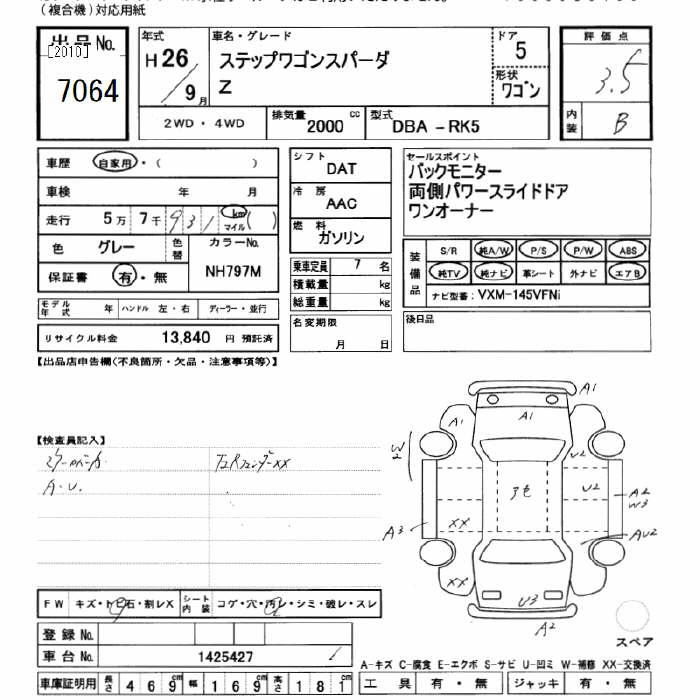 (複合機)対応用紙
出品No.
[2010]
7064
年式
H 26
9月
車名・グレード
ステップワゴンスパーダ
Z
ドア
5
形状
ワゴン
2WD・4WD
排気量
2000 cc
型式
DBA -RK5
評価点
3.5
内装
B
車歴 自家用・( )
車検 年 月
走行 5万 7千 931 km マイル ( )
色 グレー 色替
カラーNo.
NH797M
保証書 有・無
モデル年式 年 ハンドル 左・右 ディーラー・並行
リサイクル料金 13,840 円 預託済
シフト
DAT
冷房
AAC
燃料
ガソリン
乗車定員 7 名
積載量 kg
総重量 kg
名変期限
月 日
セールスポイント
バックモニター
両側パワースライドドア
ワンオーナー
装備品
S/R 純A/W P/S P/W ABS
純TV 純ナビ 革シート 外ナビ エアB
ナビ型番: VXM-145VFNi
後日品
【出品店申告欄(不良箇所・欠品・注意事項等)】
【検査員記入】
A・U.
A1
A1
A1
W2
U2
U2
ア色
A2
W3
A3
XX
AU2
XX
U3
A2
スペア
FW キズ・トビ石・割レX
シート内装 コゲ・穴・汚レ・シミ・破レ・スレ
登録No.
車台No. 1425427
車庫証明用 長さ 469cm 幅 169cm 高さ 181cm
A-キズ C-腐食 E-エクボ S-サビ U-凹ミ W-補修 XX-交換済
工具 有・無 ジャッキ 有・無